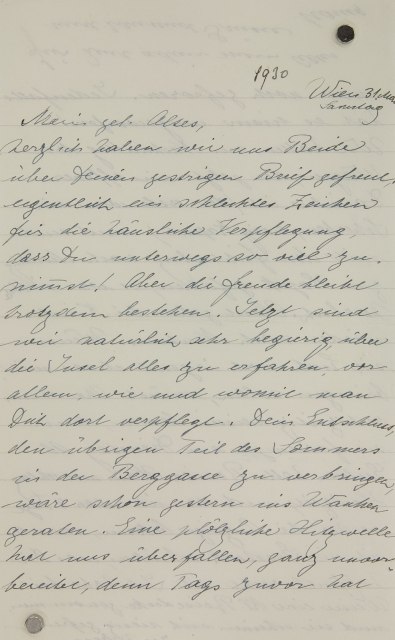 1930
Wien 31 Mai
Samstag
Mein gel. Altes,
herzlich haben wir uns Beide
über Deinen gestrigen Brief gefreut,
eigentlich ein schlechtes Zeichen
für die häusliche Verpflegung,
dass Du unterwegs so viel zu-
nimmst! Aber die Freude bleibt
trotzdem bestehen. Jetzt sind
wir natürlich sehr begierig über
die Insel alles zu erfahren, vor
allem, wie und womit man
Dich dort verpflegt. Dein Entschluss,
den übrigen Teil des Sommers
in der Berggasse zu verbringen,
wäre schon gestern ins Wanken
geraten. Eine plötzliche Hitzwelle
hat uns überfallen, ganz unvor-
bereitet, denn Tags zuvor hat